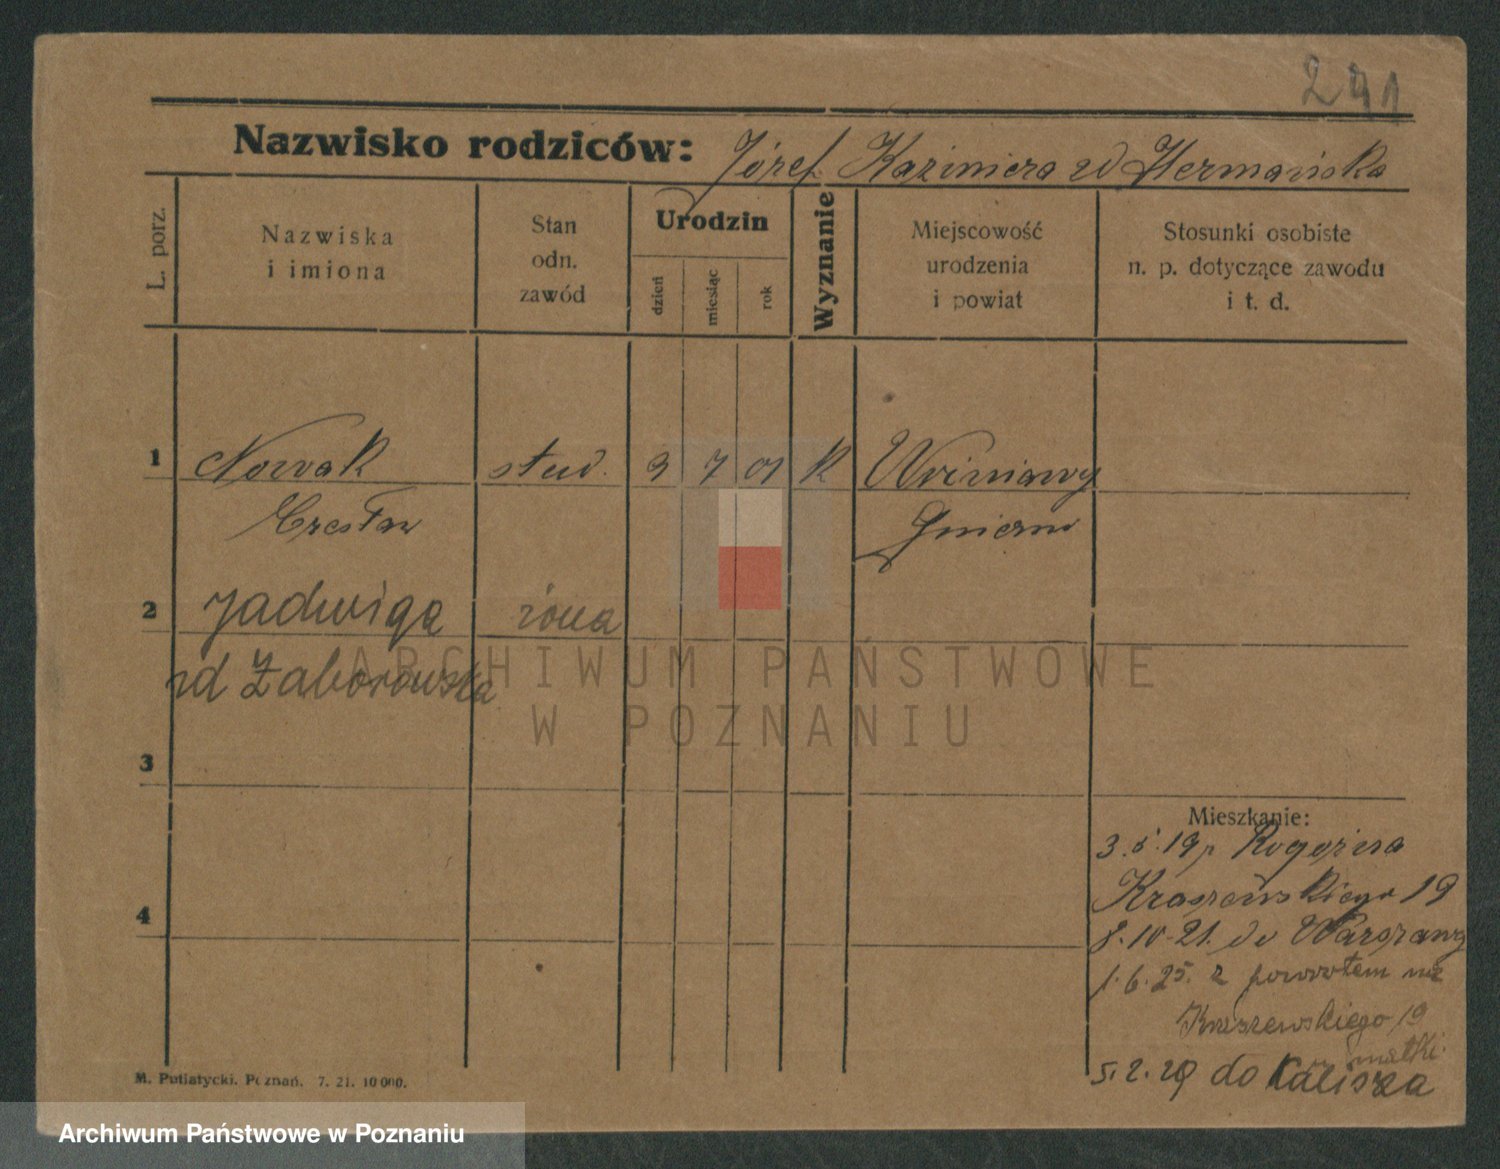 241
Nazwisko rodziców: Józef Kazimiera zd Hermańska
L. porz.
Nazwiska
i imiona
Stan
odn.
zawód
Urodzin
dzień
miesiąc
rok
Wyznanie
Miejscowość
urodzenia
i powiat
Stosunki osobiste
n. p. dotyczące zawodu
i t. d.
1 Nowak stud. 9 7 01 K
Czesław Gniezno
2 Jadwiga żona
zd Zaborowska
3
Mieszkanie:
3. 5. 19
Kraszewskiego 19
4
8. 10-21. do Warszawy
1. 6. 25. z powrotem na
Kraszewskiego 19
matki
5. 2. 29 do Kalisza
M. Putiatycki. Poznań. 7. 21. 10 000.
ARCHIWUM PAŃSTWOWE
W POZNANIU
Archiwum Państwowe w Poznaniu